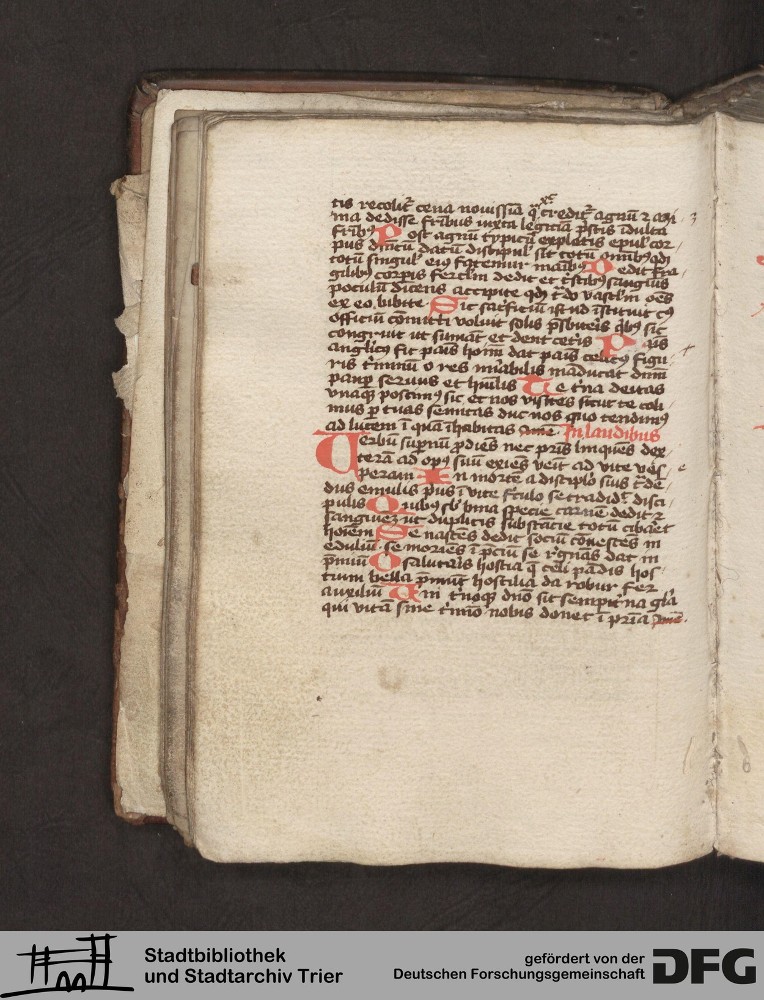 tis recolit᷑ cena nouissīa q̄ xp̄c credit᷑ agnū ⁊ azi
ma dedisse fr̄ibus iuxta legitīa pristis īdulta
fr̄ibꝯ Post agnū typicū expletis epulꝭ cor
pus dn̄icū datū discipulꝭ sic totū oīnibꝯ qd̓
totū singulꝭ eiꝯ fatemur maībꝯ Dedit fra
gilibꝯ corpis ferclm̄ dedit et tristibꝯ sangu̓is
poculū dicens accipite qd̓ trado vasclm̄ oēs
ex eo bibite Sic sac̓ficiū istud īstituit cꝯ
officiū com̄itti voluit solis p̄sbiteris qibꝯ sic
congruit ut sumāt et dent cet̓is Pais
anglicꝯ fit pais hoīm dat pais celicꝯ figu
ris t̓minū o res mirabilis māducat dn̄m
paup̲ seruus et huīlis Te trina deitas
vnaqꝫ poscimꝯ sic et nos visites sicut te coli
mus p̲ tuas semitas duc nos quo tendimꝯ
ad lucem ī quā īhabitas Amē In laudibus
Uerbū sup̲nū p̲diēs nec pris linques dex
terā ad opꝯ suū exiēs venit ad vite ves
peram In mortē a discipulo suis tde
dus emulis prius ī vite ferculo se tradidit disci
pulis Quibꝯ sb̓ bina specie carnē dedit ⁊
sanguiez ut duplicis substātie totū cibaret
hoīem Se nascēs dedit sociū conuescēs in
eduliū se moriēs ī preciū se regnās dat in
premiū O salutaris hostia q̄ celi pādis hos
tium bella premūt hostilia da robur fer
auxiliū Uni trinoqꝫ dn̄o sit sempit̓na gl̄a
qui vitā sine t̓mīo nobis donet ī pr̄ia Amē
Stadtbibliothek
und Stadtarchiv Trier
gefördert von der
Deutschen Forschungsgemeinschaft
DFG